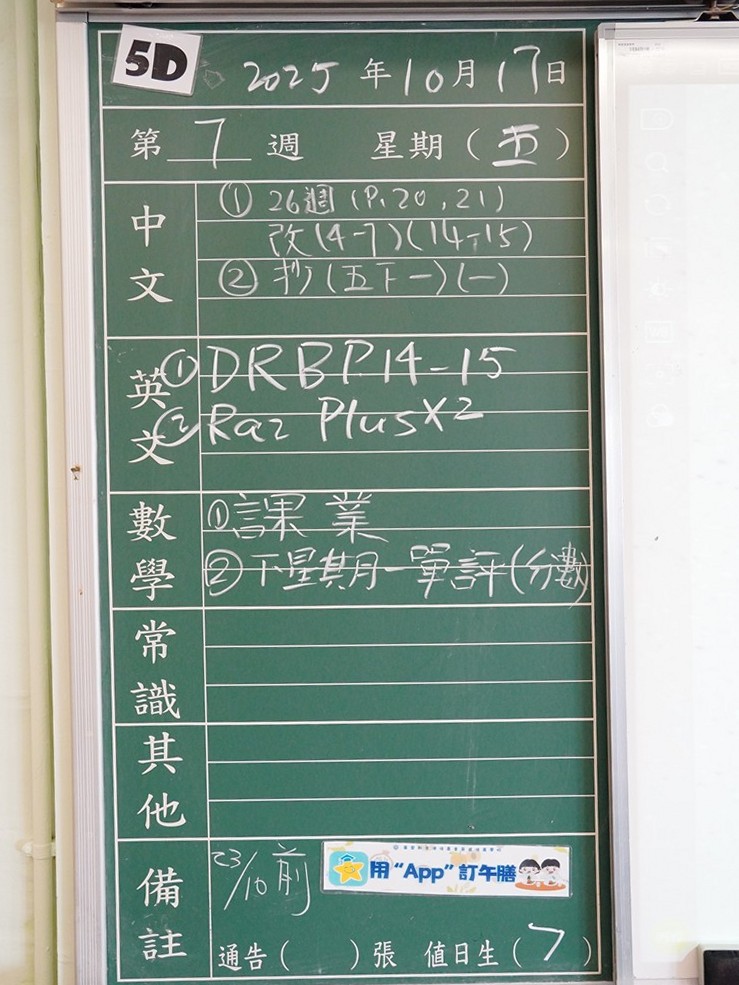 5D
2025年10月17日
第 7 週 星期(五)
中文
① 26週 (P.20, 21)
改(4-7)(14-15)
② 抄(五下一)(一)
英文
① DRBP14-15
② Raz Plus X2
數學
① 課業
② 下星期一單評(分數)
常識
其他
備註
23/10前
用“App”訂午膳
通告( )張 值日生(7)